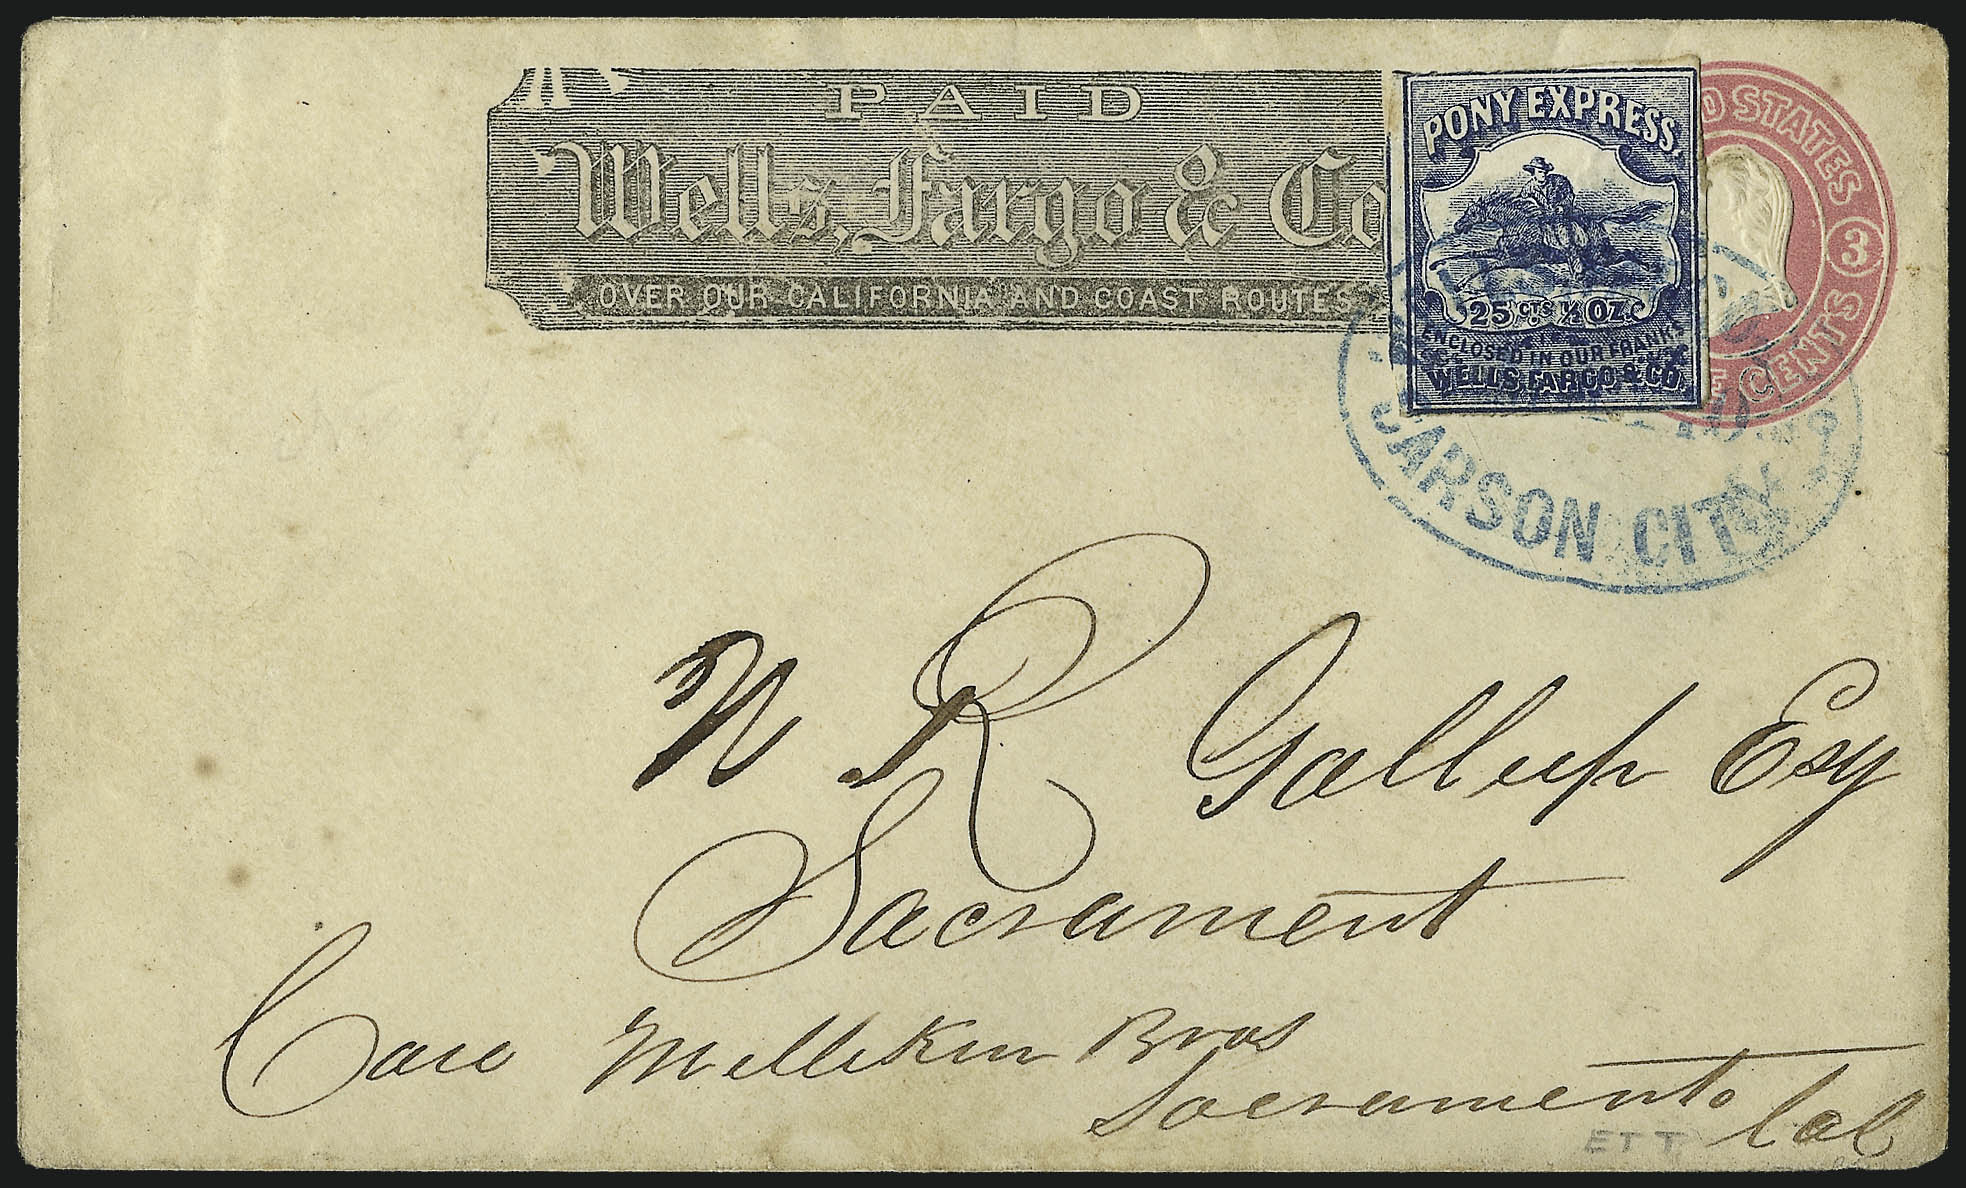 PAID
Wells, Fargo & Co
OVER OUR CALIFORNIA AND COAST ROUTES.
PONY EXPRESS.
25 CTS ½ OZ.
ENCLOSED IN OUR FRANKS
WELLS, FARGO & CO.
D STATES
3
E CENTS
CARSON CITY
N R Gallup Esq
Sacrament
Care Milliken Bros
Sacramento Cal
ETT